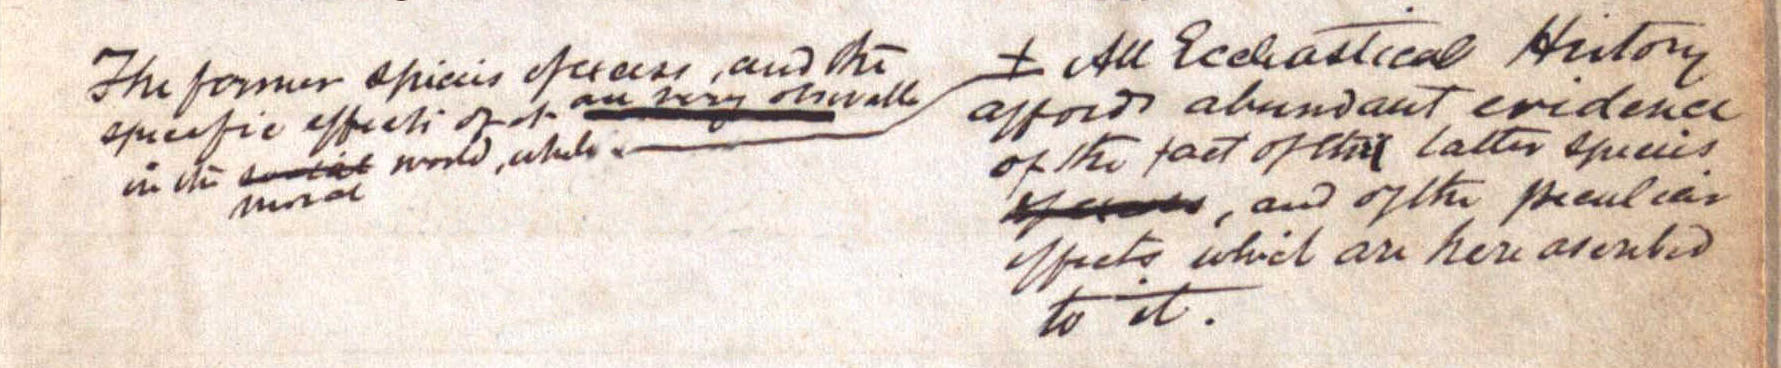 The former species of excess, and the
specific effects of it are very observable
in the social world, while
moral
‡ All Eccleastical History
affords abundant evidence
of the fact of this latter species
of excess, and of the peculiar
effects which are here ascribed
to it.